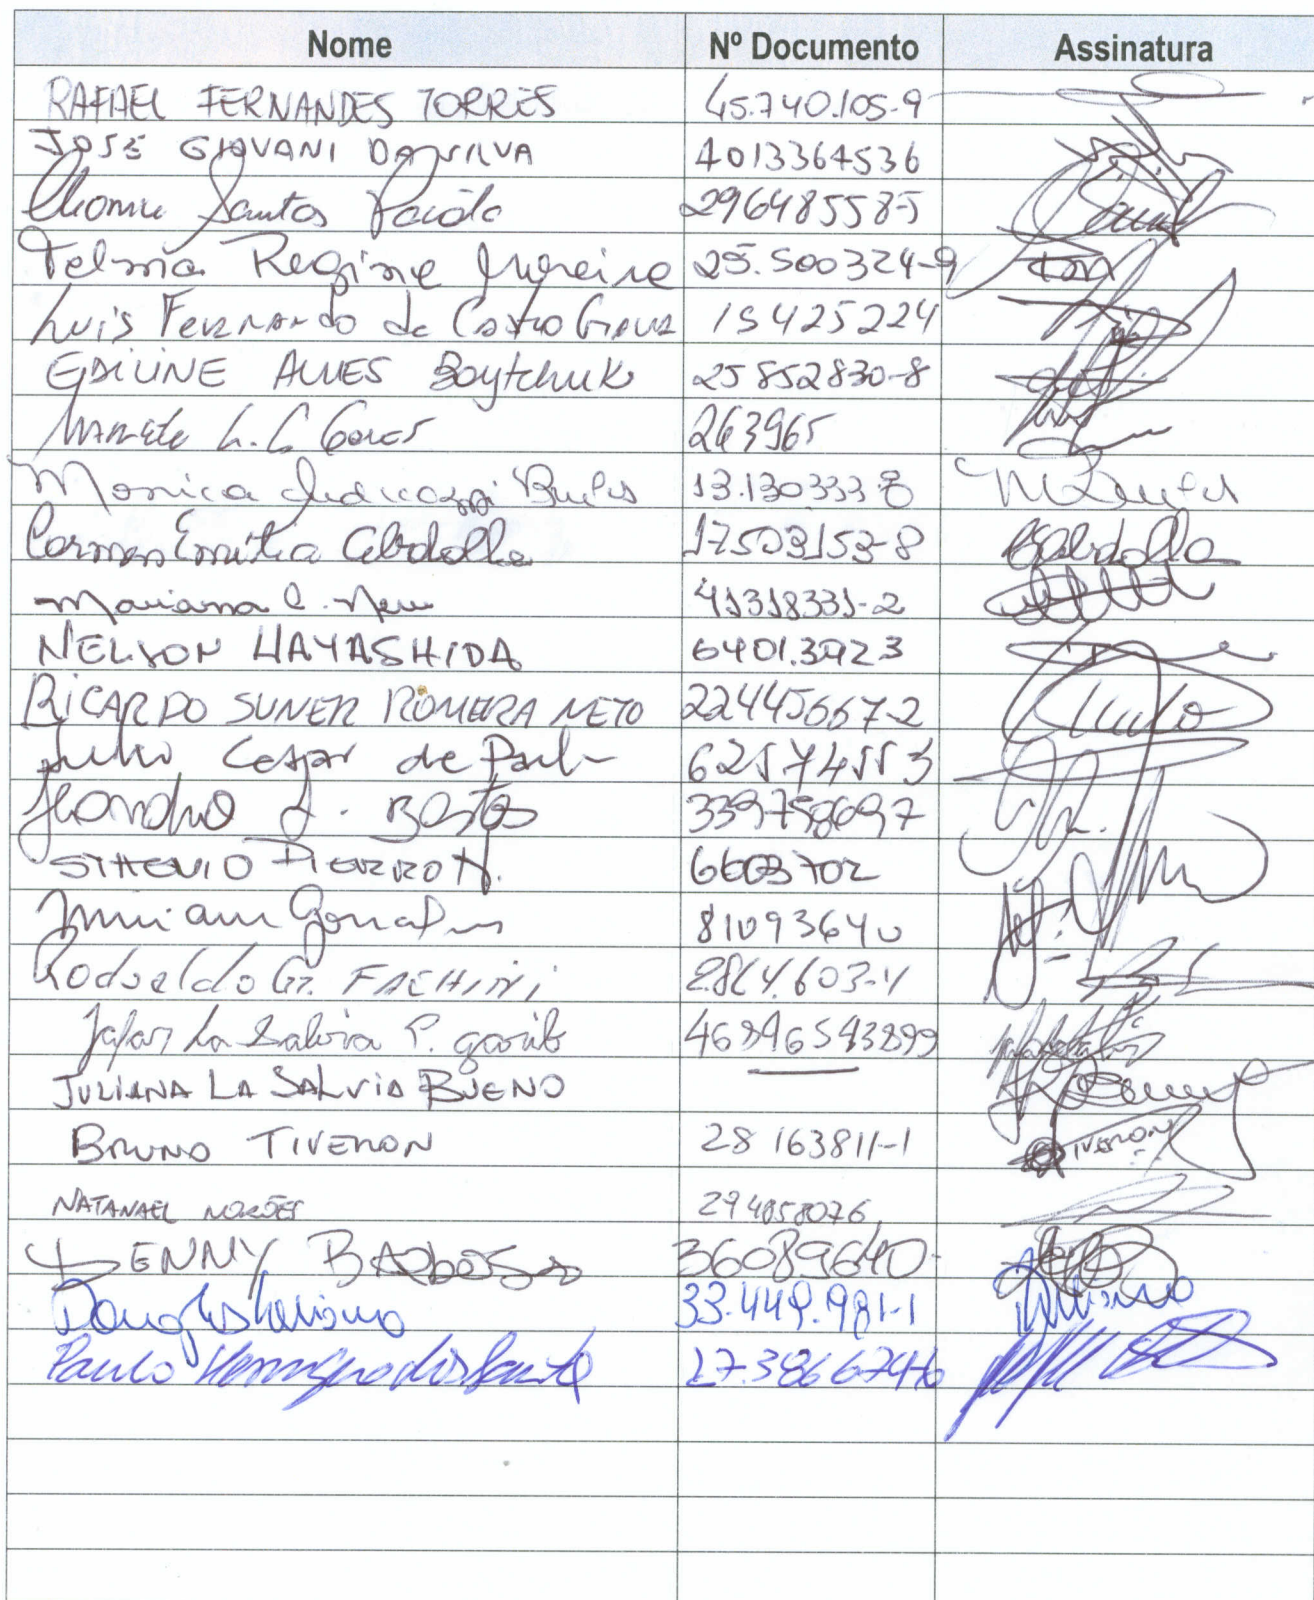 Nome Nº Documento Assinatura
RAFAEL FERNANDES TORRES 45.740.105-9
JOSÉ GIOVANI DA SILVA 4013364536
Santos 296485583-5
Telma Regine Moreira 25.500324-9
Luis Fernando de Castro 15425224
EDILINE ALVES Boytchuk 25852830-8
L. C. Goes 263965
Monica 13.130333-8
Carmen Emilia Abdolla 17503153-8 Abdolla
Mariana C. 41318331-2
NELSON HAYASHIDA 6401.392.3
RICARDO SUNER ROMERA NETO 22445667-2
Julio Cesar de Paula
Leandro J. Bastos 339758697
STHENIO PIERROT. 6603702
Miriam Gonçalves 81093640
Rodoaldo G. FACHINI 2.864.603-4
Jafar La Salvia P. garib 46896593899
JULIANA LA SALVIA BUENO
BRUNO TIVERON 28 163811-1 TIVERON
NATANAEL MORÕES 294858076
DENNY BARBOSA 36089640-
Douglas Mariano 33.449.981-1
Paulo dos Santos 27.386674-6